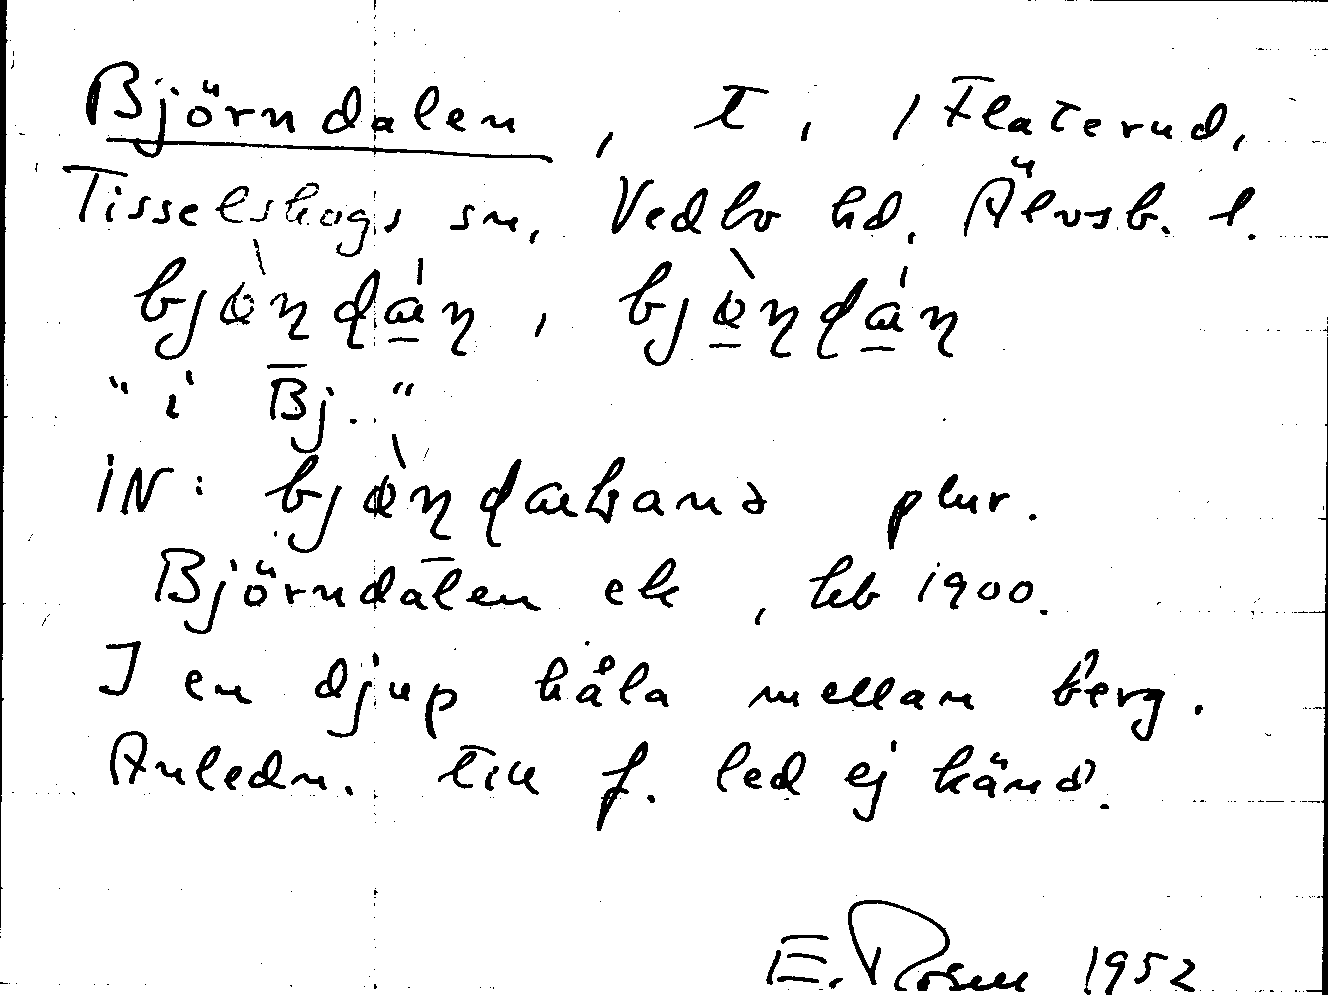 Björndalen, t, 1 Flaterud,
Tisselskogs sn, Vedbo hd, Älvsb. l.
bjò̤ndán, bjò̤ndán
"i Bj."
iN: plur.
Björndalen ek, kb 1900.
I en djup håla mellan berg.
Anledn. till f. led ej känd.
E. Rosen 1952